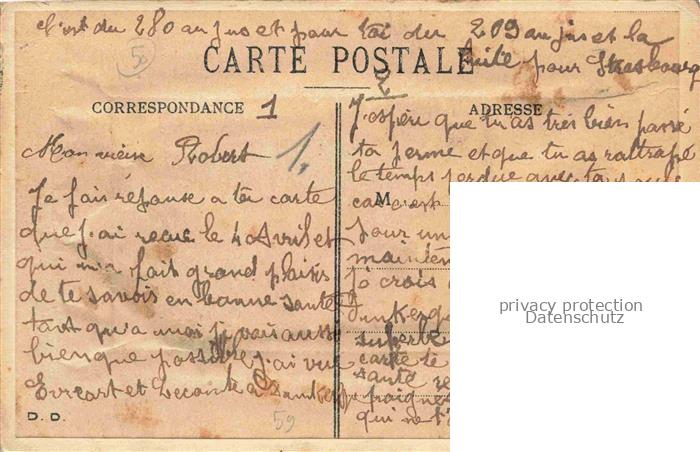 C'est du 280 au jus et pour toi du 209 au jus et la
fuite pour Strasbourg
50
CARTE POSTALE
CORRESPONDANCE 1
Mon vieux Robert
Je fais réponse a ta carte
que j'ai recue le 4 Avril et
qui m'a fait grand plaisir
de te savoir en bonne santé
tant qu'a moi je vais aussi
bien que possible j'ai vu
Evrart et Lecointe a Dunkerque
D. D.
59
2
ADRESSE
J'espère que tu as très bien passé
ta perme et que tu as rattrapé
le temps perdue avec ta
M
car c'est
pour un
maintena
je crois
Dunkerque
superbe
carte te
santé
poigne
qui ne t'
privacy protection
Datenschutz